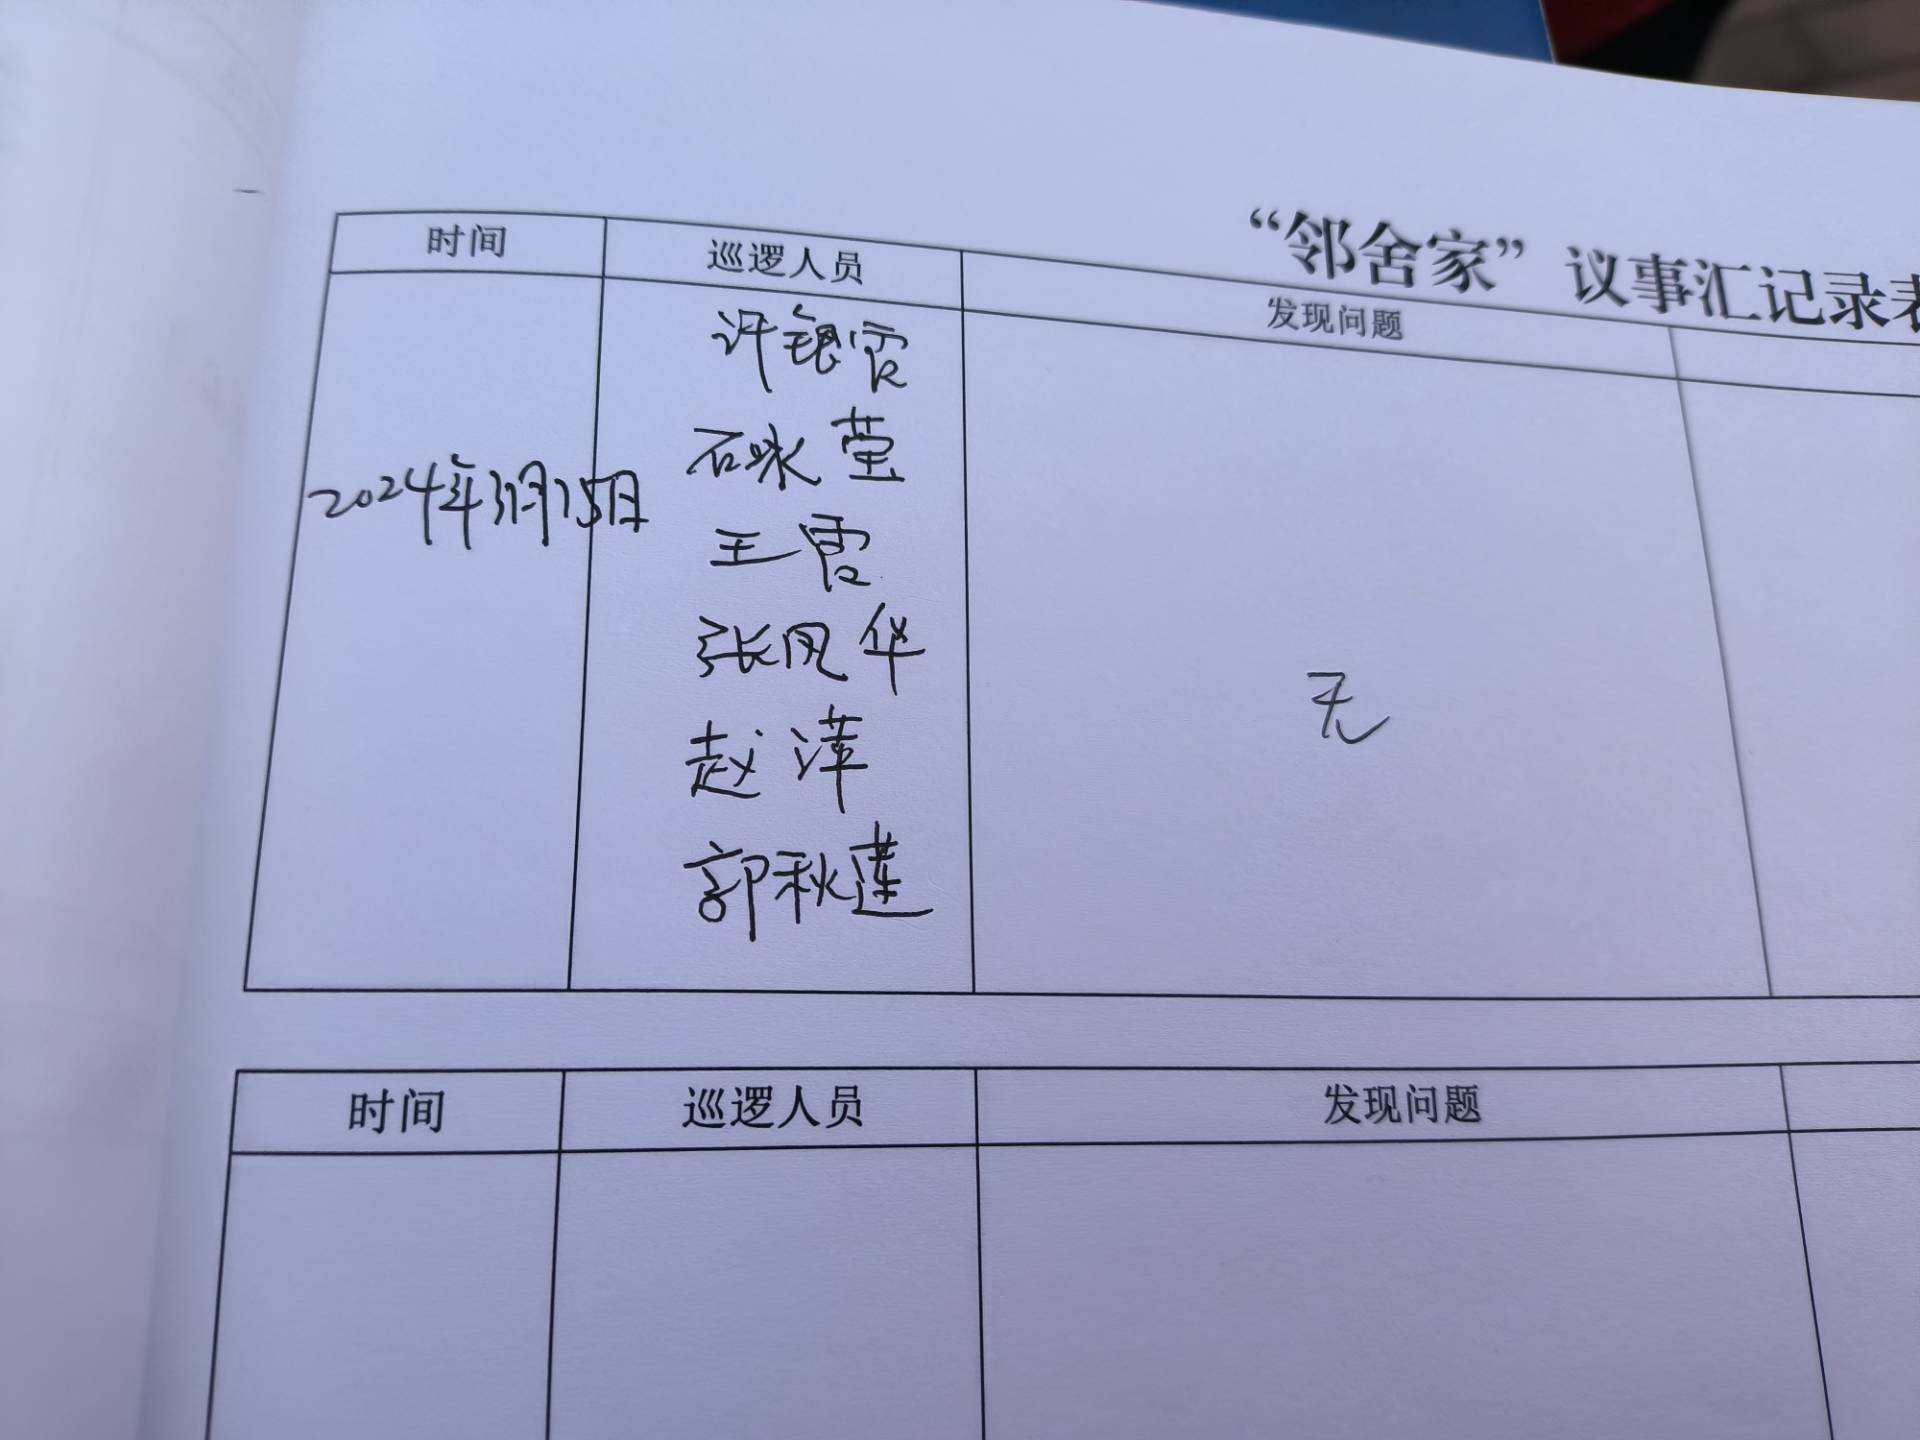 “邻舍家”议事汇记录表
时间
巡逻人员
发现问题
2024年3月15日
许银霞
石咏莹
王霞
张凤华
赵萍
郭秋莲
无
时间
巡逻人员
发现问题